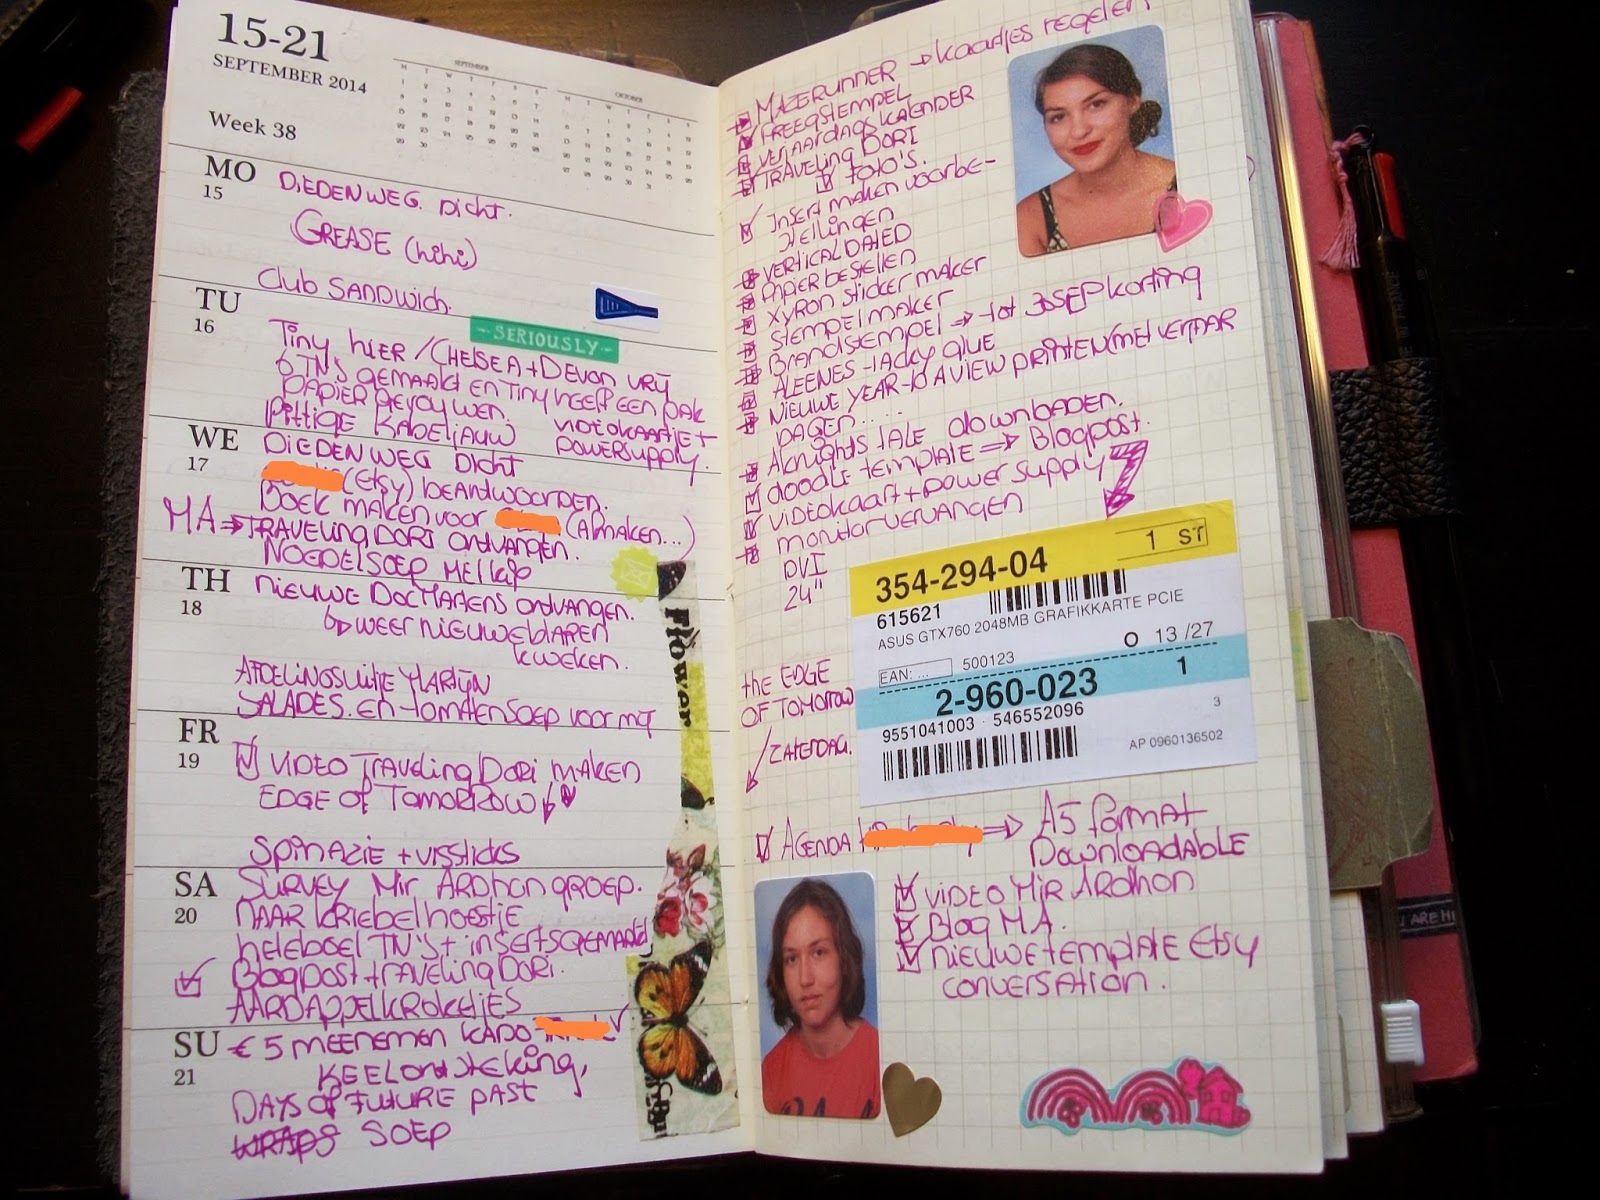 15-21
SEPTEMBER 2014
Week 38
SEPTEMBER
OKTOBER
MO
15
DIEDENWEG DICHT.
GREASE (hihi)
Club SANDWICH.
TU
16
- SERIOUSLY -
Tiny hier / CHELSEA + DEVON VRIJ
6 TN'S GEMAAKT EN TINY HEEFT EEN PAK
PAPIER GEVOUWEN.
Pittige KABELJAUW VIDEOKAARTJE +
POWERSUPPLY.
WE
17
DIEDENWEG DICHT
(Etsy) beantwoorden.
Boek maken voor (Afmaken...)
MA ⇒ TRAVELING DORI ontvangen.
NOEDELSOEP
TH
18
NIEUWE DOCMARTENS ontvangen.
↳ WEER NIEUWE BLAREN
KWEKEN.
AFDELINGSUITJE MARTIJN
SALADES. EN TOMATENSOEP VOOR MIJ
Flower
FR
19
VIDEO TRAVELING DORI MAKEN
EDGE OF TOMORROW
SPINAZIE + VISSTICKS
SA
20
SURVEY Mir ARDHON GROEP.
NAAR KRIEBELHOESTJE
HELEBOEL TN'S + INSERTS GEMAAKT
Blogpost TRAVELING DORI.
AARDAPPELKROKETJES
SU
21
€5 MEENEMEN KADO
KEELONTSTEKING,
DAYS OF FUTURE PAST
WRAPS SOEP
MAZERUNNER → kaartjes regelen
FREEQSTEMPEL
VERJAARDAGSKALENDER
TRAVELING DORI
FOTO'S.
Insert maken voorbe-
stellingen
VERTICAL DATED
PAPIER bestellen
XYRON sticker maker
STEMPELMAKER
Brandstempel ⇒ tot 30 SEP korting
ALEENES TACKY glue
NIEUWE YEAR-to A VIEW PRINTEN (MET VERJAAR
DAGEN....
AKNIGHTS TALE downloaden.
doodle template ⇒ Blogpost.
VIDEOKAART + POWER SUPPLY
monitor vervangen
DVI
24"
354-294-04
1 ST
615621
ASUS GTX760 2048MB GRAFIKKARTE PCIE
O 13/27
EAN: ... 500123
2-960-023
1
9551041003 · 546552096
3
AP 0960136502
the EDGE
OF TOMORROW
ZATERDAG.
AGENDA ⇒ A5 format
Downloadable
VIDEO Mir Ardhon
Blog M.A.
NIEUWE template Etsy
conversation.